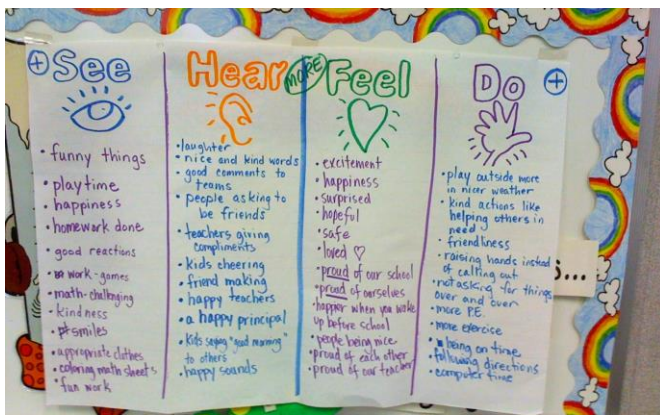 + See
• funny things
• playtime
• happiness
• homework done
• good reactions
• work-games
• math-challenging
• kindness
• smiles
• appropriate clothes
• coloring math sheets
• fun work
Hear
• laughter
• nice and kind words
• good comments to
teams
• people asking to
be friends
• teachers giving
compliments
• kids cheering
• friend making
• happy teachers
• a happy principal
• kids saying "good morning"
to others
• happy sounds
MORE
Feel
• excitement
• happiness
• surprised
• hopeful
• safe
• loved ♡
• proud of our school
• proud of ourselves
• happier when you woke
up before school
• people being nice
• proud of each other
• proud of our teacher
Do +
• play outside more
in nicer weather
• kind actions like
helping others in
need
• friendliness
• raising hands instead
of calling out
• not asking for things
over and over
• more P.E.
• more exercise
• being on time
• following directions
• computer time